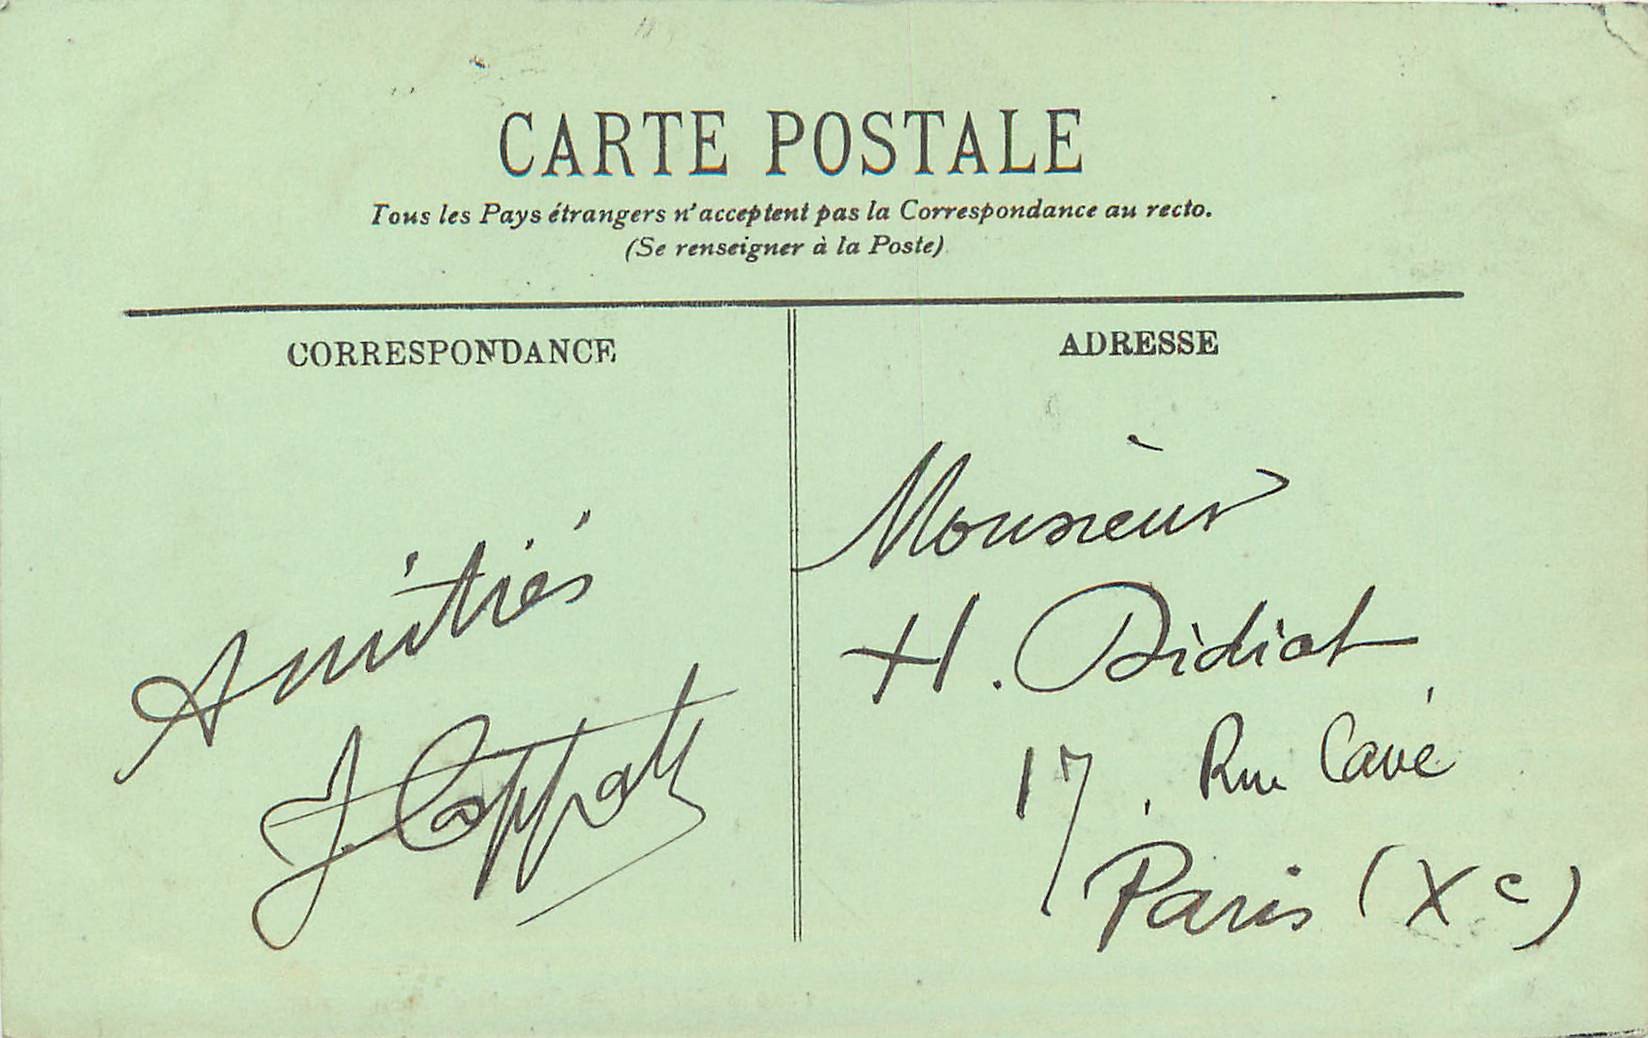 CARTE POSTALE
Tous les Pays étrangers n'acceptent pas la Correspondance au recto.
(Se renseigner à la Poste)
CORRESPONDANCE
Amitiés
J.
ADRESSE
Monsieur
H. Didiot
17, Rue Cavé
Paris (Xe)